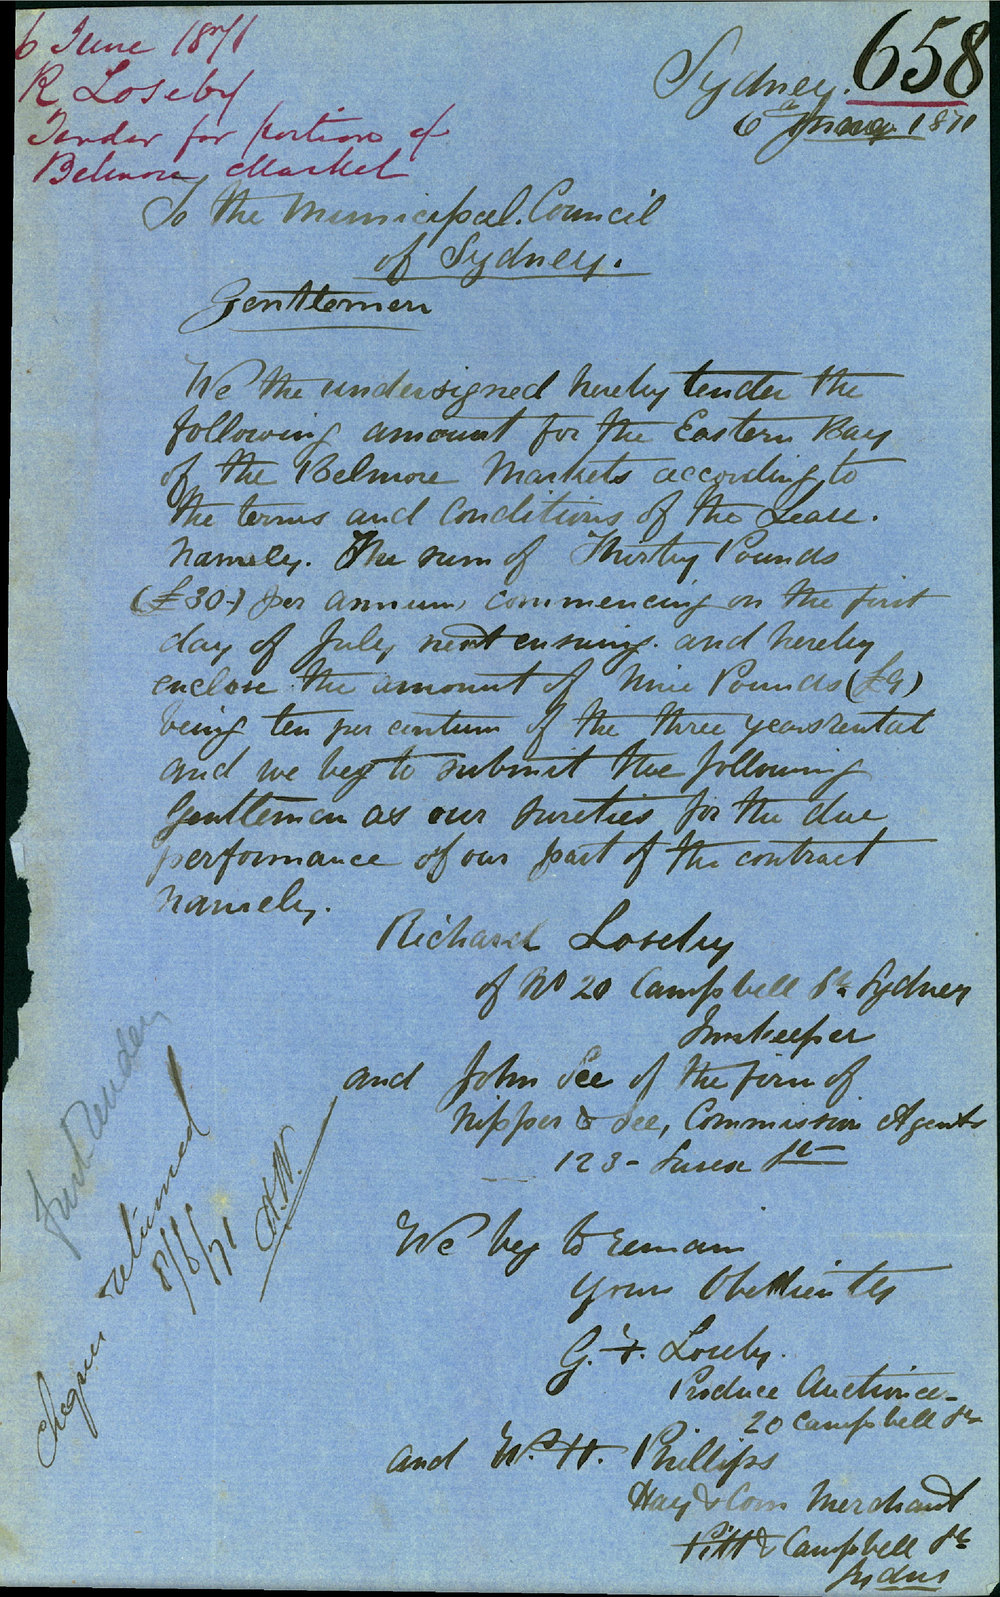 6 June 1871
R Loseby
Tender for portion of
Belmore Market
658
Sydney.
6th June 1871
To the Municipal Council
of Sydney.
Gentlemen
We the undersigned hereby tender the
following amount for the Eastern Bay
of the Belmore Markets according to
the terms and Conditions of the Lease.
Namely. The sum of Thirty Pounds
(£30-) per annum, commencing on the first
day of July next ensuing. and hereby
enclose the amount of Nine Pounds (£9)
being ten per centum of the three years rental
and we beg to submit the following
Gentlemen as our sureties for the due
performance of our part of the contract
Namely.
Richard Loseby
of No 20 Campbell St Sydney
Innkeeper
and John See of the firm of
Nipper & See, Commission Agents
123 - Sussex St
We beg to remain
Yours Obediently
G. F. Loseby.
Produce Auctioneer
20 Campbell St
and W. H. Phillips
Hay & Corn Merchant
Pitt & Campbell St
Sydney
Cheque returned
8/6/71